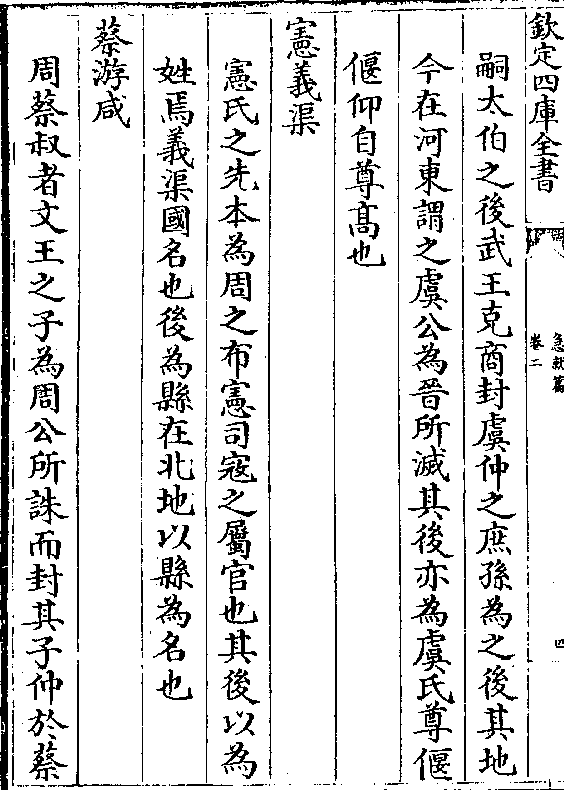 欽定四庫全書
急就篇
卷二
四
嗣太伯之後武王克商封虞仲之庶孫為之後其地
今在河東謂之虞公為晉所滅其後亦為虞氏尊偃
偃仰自尊髙也
憲義渠
憲氏之先本為周之布憲司寇之屬官也其後以為
姓焉義渠國名也後為縣在北地以縣為名也
蔡游咸
周蔡叔者文王之子為周公所誅而封其子仲於蔡